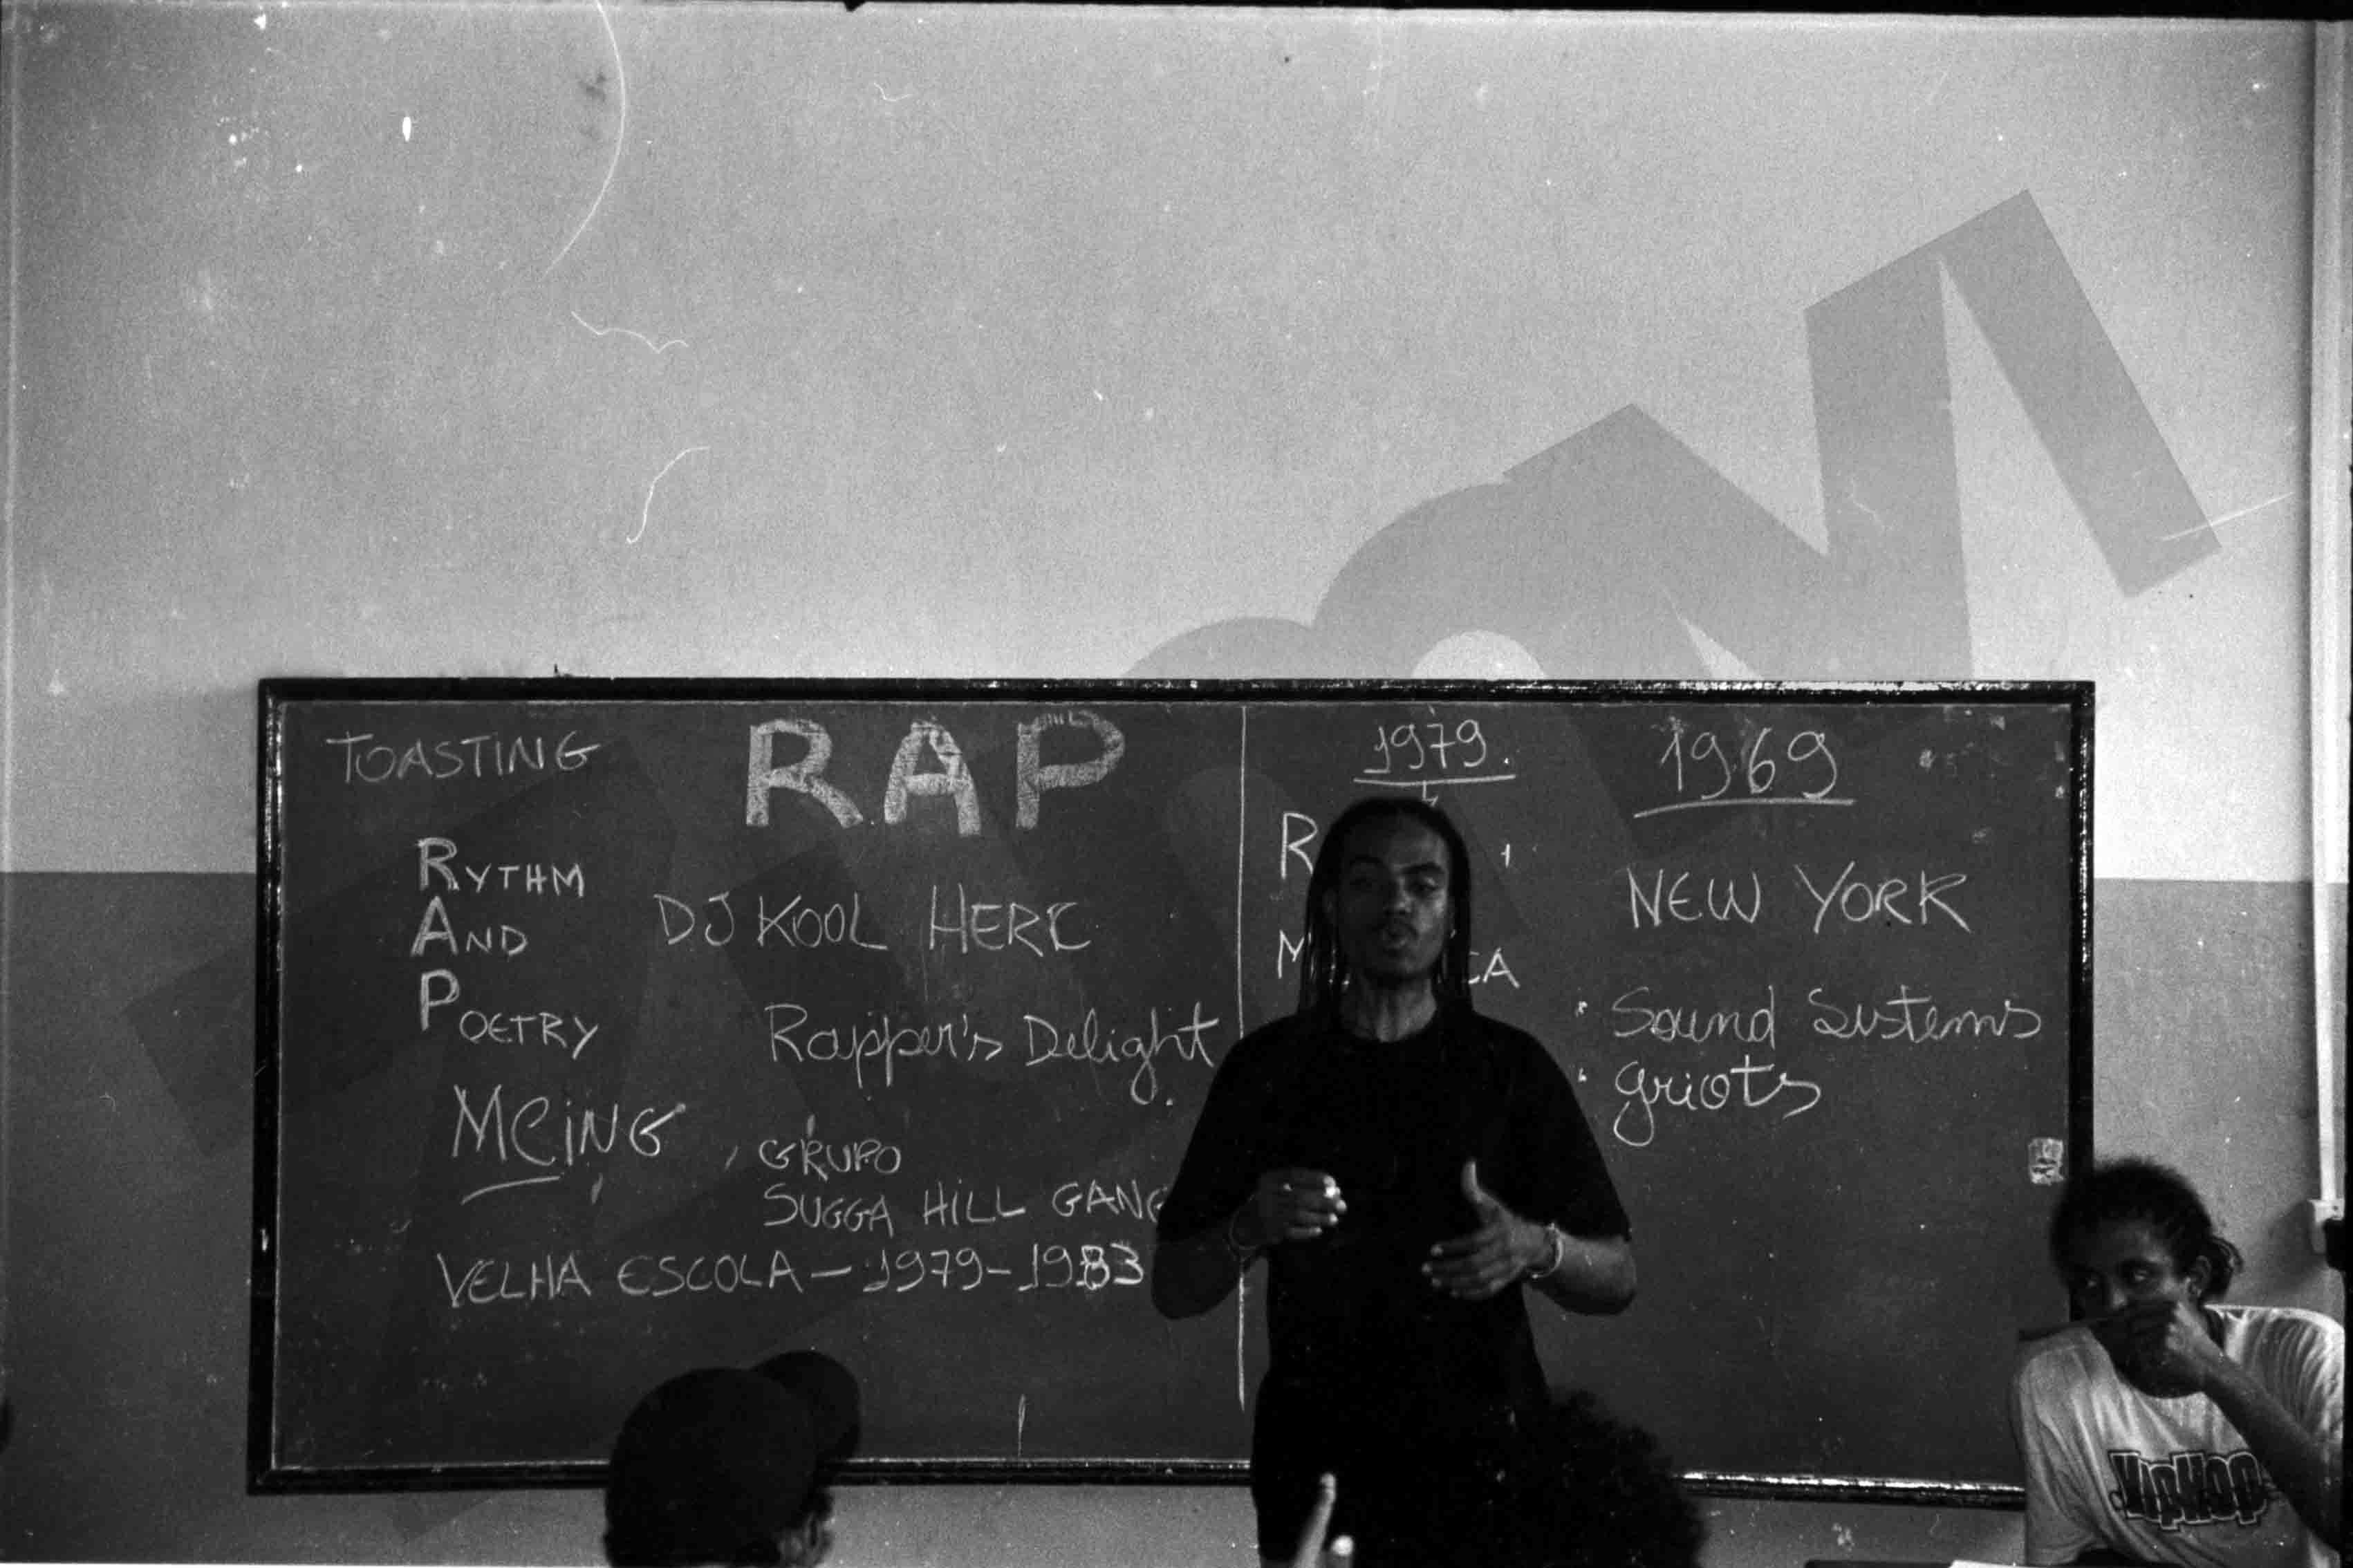 TOASTING
RAP
RYTHM
AND
POETRY
DJ KOOL HERC
Rapper's Delight
MCiNG
GRUPO
SUGGA HiLL GANG
VELHA ESCOLA – 1979-1983
1979.
1969
NEW YORK
· Sound Sistems
· griots
HipHop